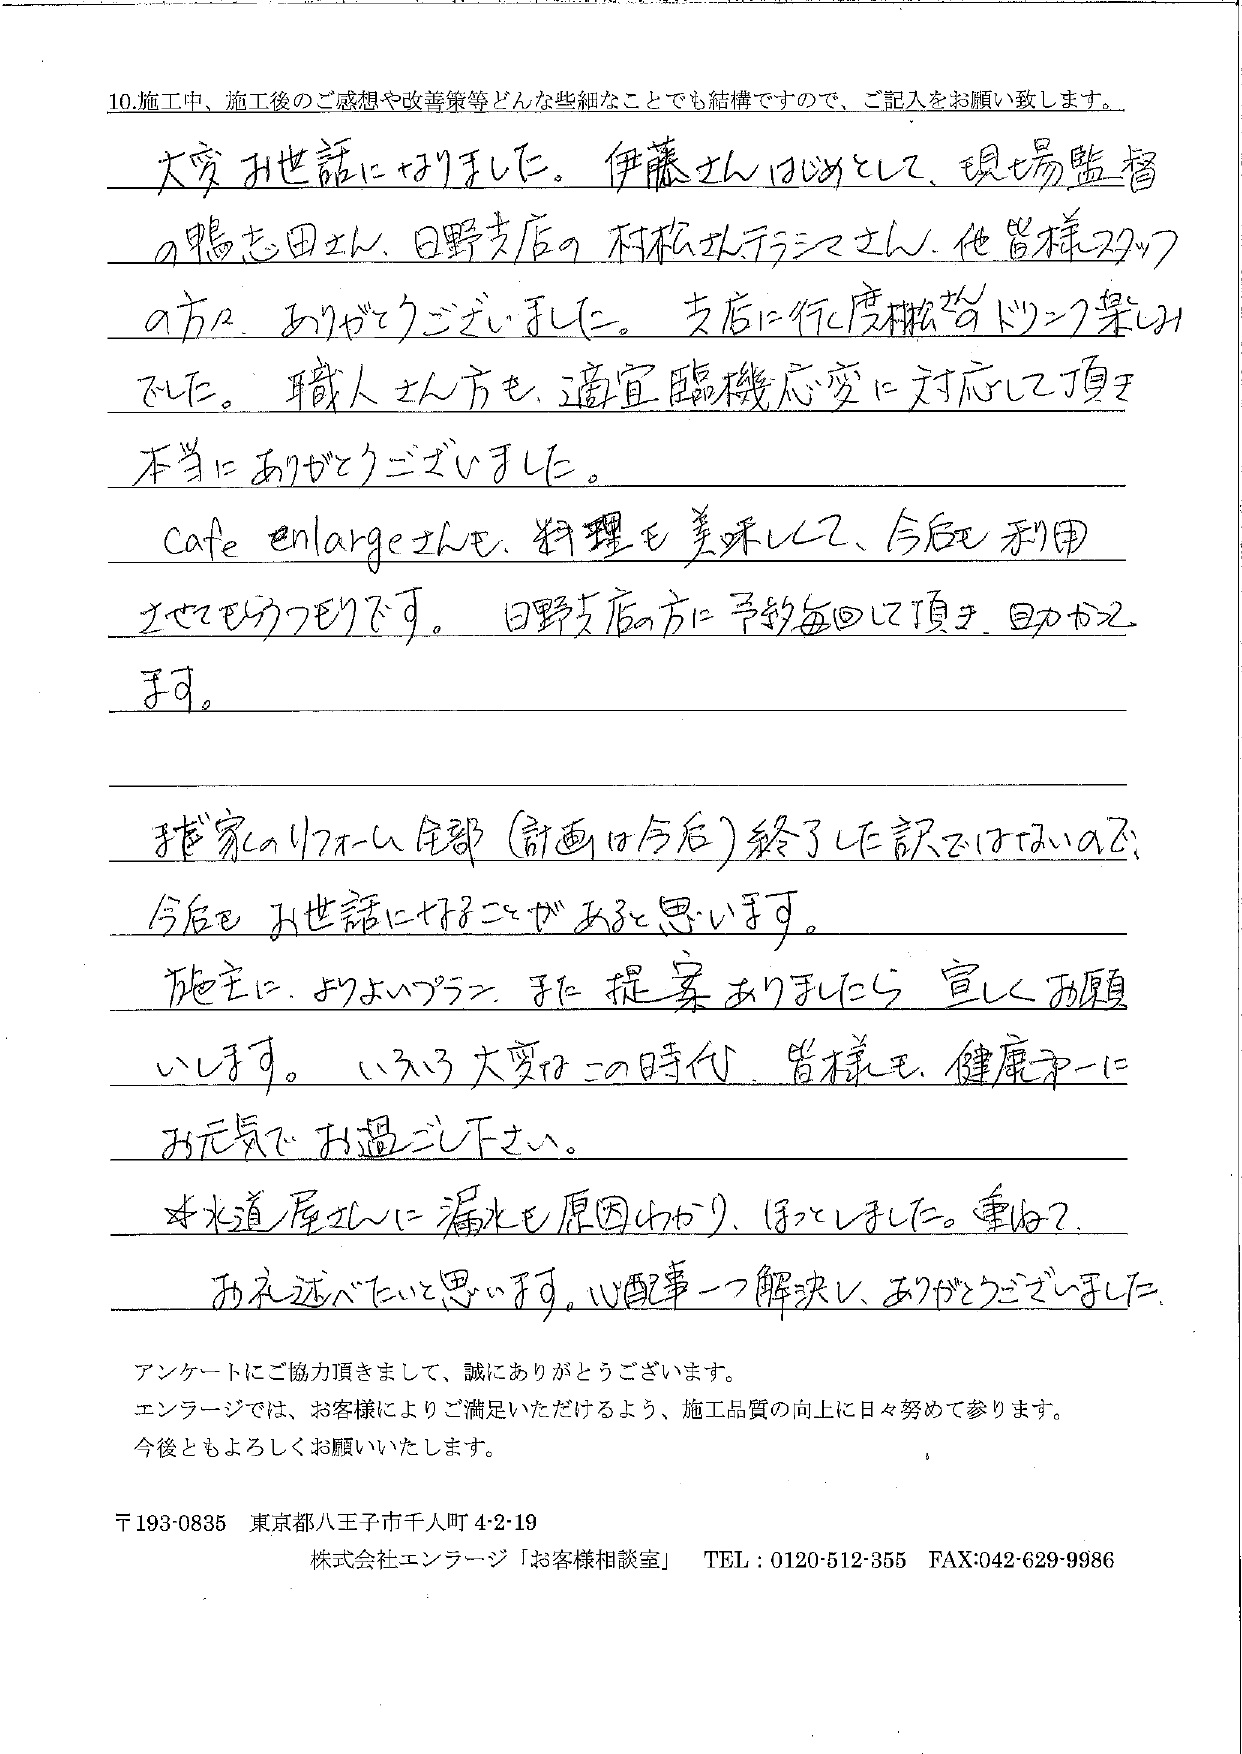 10.施工中、施工後のご感想や改善策等どんな些細なことでも結構ですので、ご記入をお願い致します。
大変お世話になりました。伊藤さんはじめとして、現場監督
の鴨志田さん、日野支店の村松さん、テラシマさん、他皆様スタッフ
の方々、ありがとうございました。支店に行く度村松さんのドリンク楽しみ
でした。職人さん方も、適宜臨機応変に対応して頂き
本当にありがとうございました。
cafe enlargeさんも、料理も美味しくて、今后も利用
させてもらうつもりです。日野支店の方に予約毎回して頂き、助かって
ます。
まだ家のリフォーム全部(計画は今后)終了した訳ではないので、
今后もお世話になることがあると思います。
施主に、よりよいプラン、また提案ありましたら宜しくお願
いします。いろいろ大変なこの時代、皆様も、健康第一に
お元気でお過ごし下さい。
*水道屋さんに漏水も原因わかり、ほっとしました。重ねて、
お礼述べたいと思います。心配事一つ解決し、ありがとうございました。
アンケートにご協力頂きまして、誠にありがとうございます。
エンラージでは、お客様によりご満足いただけるよう、施工品質の向上に日々努めて参ります。
今後ともよろしくお願いいたします。
〒193-0835 東京都八王子市千人町 4-2-19
株式会社エンラージ「お客様相談室」 TEL：0120-512-355 FAX:042-629-9986